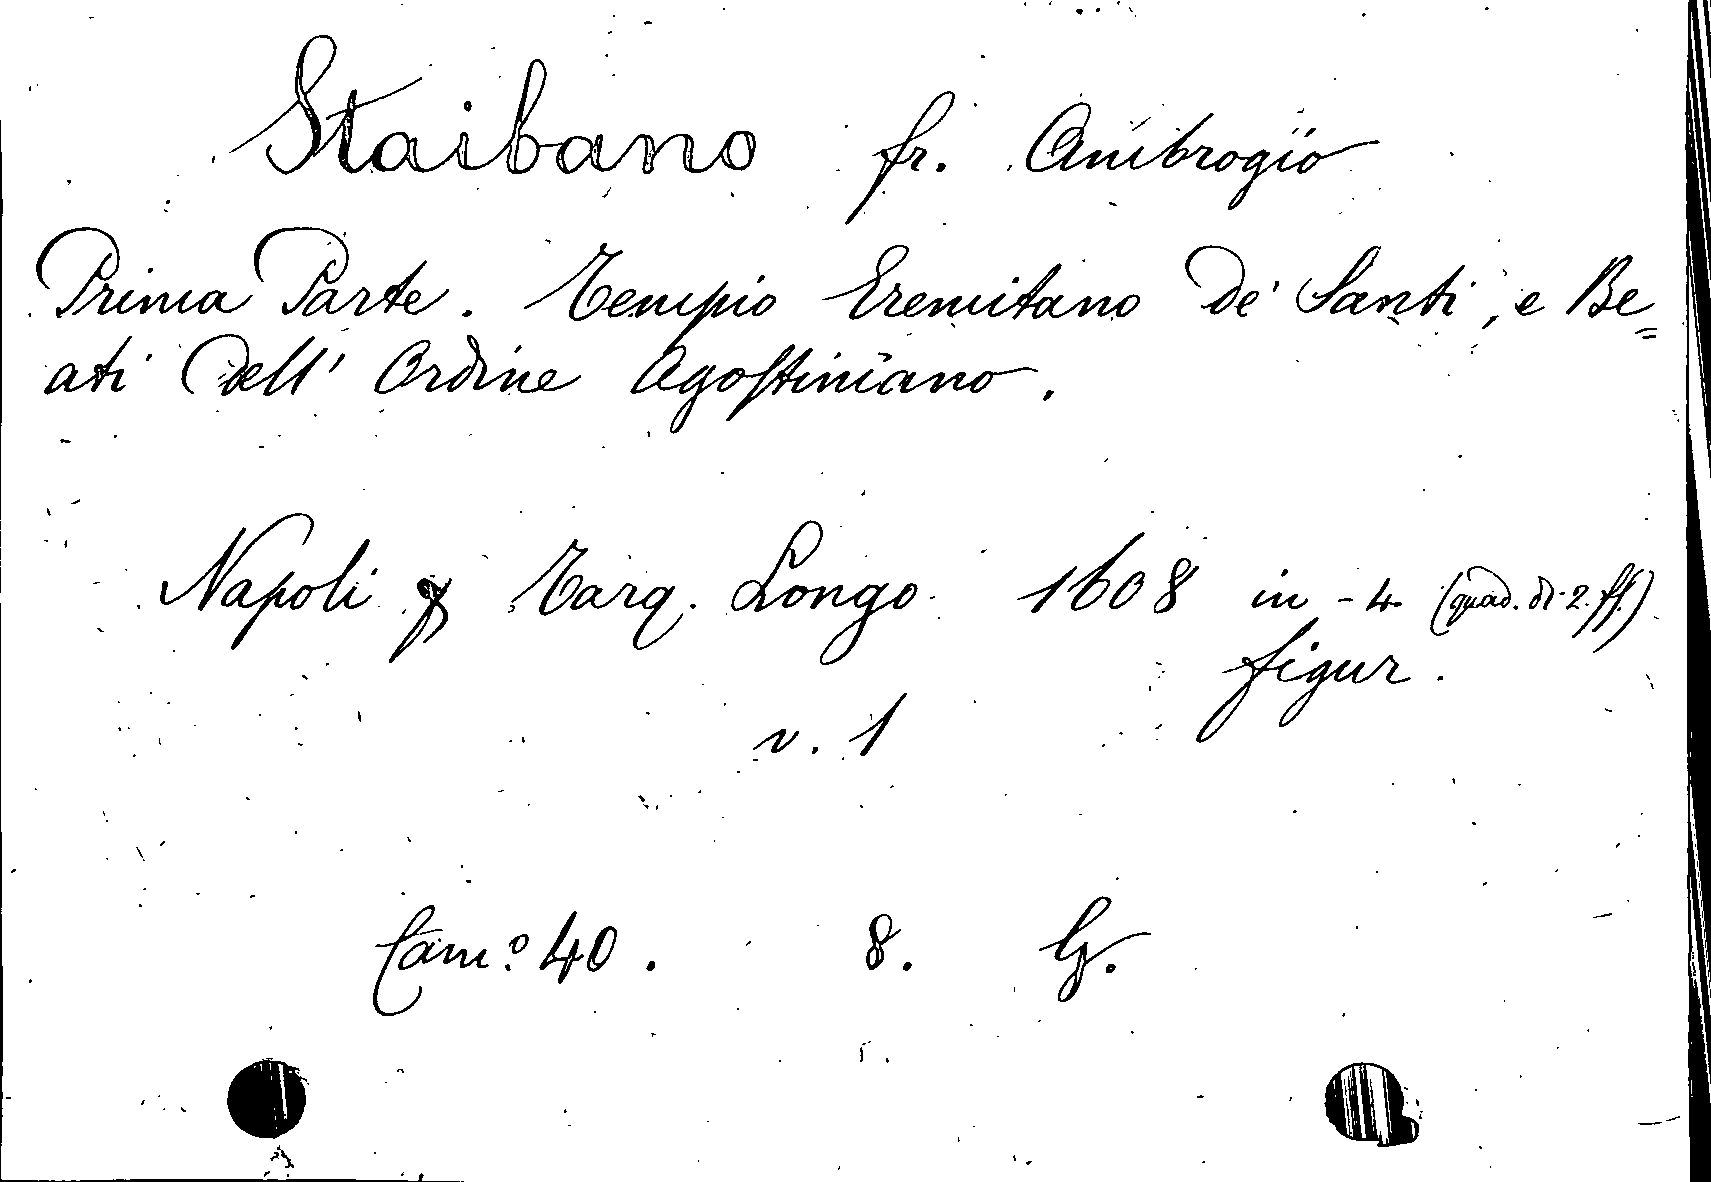 Staibano fr. Ambrogio
Prima Parte. Tempio Eremitano de' Santi, e Be=
ati dell' Ordine Agostiniano.
Napoli Tarq. Longo 1608 in-4 (quad. di 2. ff.)
figur.
v. 1
Cam.º 40. 8. G.